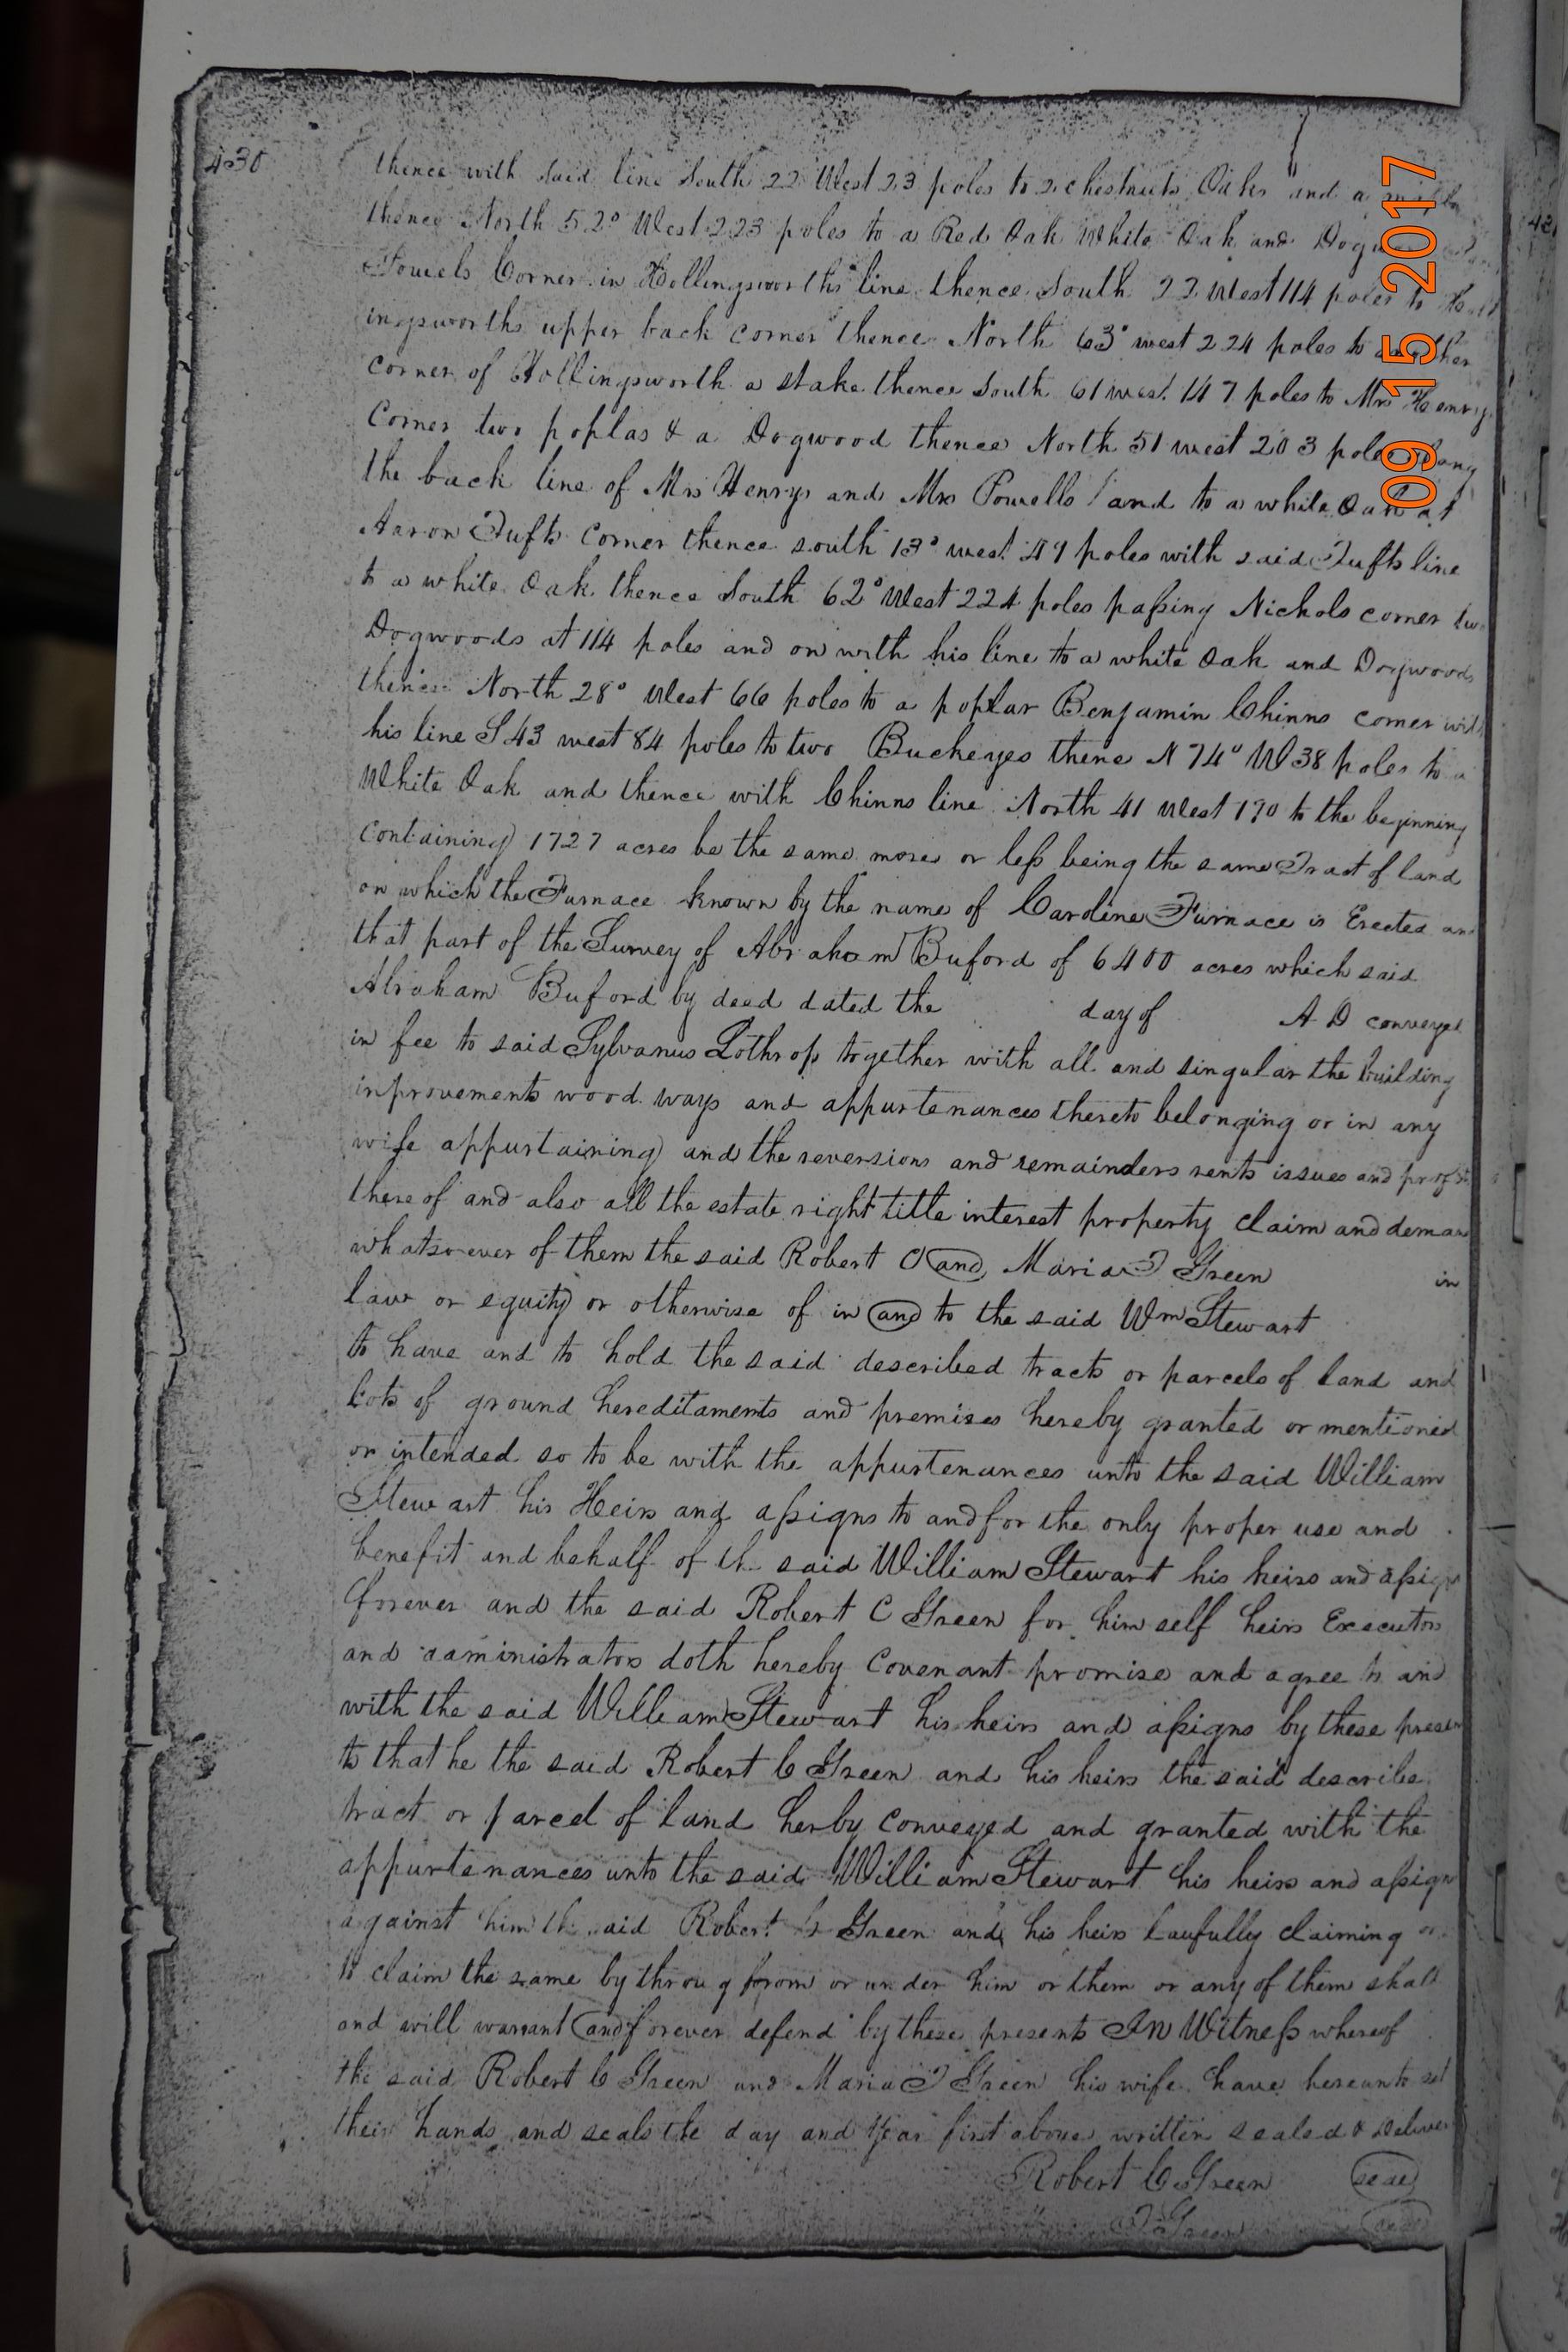 430
thence with said line South 22 West 23 poles to 2 chestnuts Oaks and a
thence North 52° West 223 poles to a Red Oak White Oak and
Fowels Corner in Hollingsworths line thence South 22 West 114 poles to
ingsworths upper back corner thence North 63° west 224 poles to another
corner of Hollingsworth a stake thence South 61 west 147 poles to Mrs Henrys
Corner two poplas & a Dogwood thence North 51 west 203 poles along
the back line of Mrs Henrys and Mrs Powells land to a white Oak at
Aaron Tufts Corner thence south 13° west 49 poles with said Tufts line
to a white Oak thence South 62° West 224 poles paſsing Nichols corner
Dogwoods at 114 poles and on with his line to a white Oak and Dogwoods
thence North 28° West 66 poles to a poplar Benjamin Chinns corner with
his line S 43 west 84 poles to two Buckeyes thence N 74° W 38 poles to a
White Oak and thence with Chinns line North 41 West 170 to the beginning
Containing 1727 acres be the same more or leſs being the same Tract of land
on which the Furnace known by the name of Caroline Furnace is Erected
that part of the Survey of Abraham Buford of 6400 acres which said
Abraham Buford by deed dated the day of A D conveyed
in fee to said Sylvanus Lothrop together with all and singular the building
inprovements wood ways and appurtenances thereto belonging or in any
wise appurtaining and the reversions and remainders rents issues and
thereof and also all the estate right title interest property claim and
whatsoever of them the said Robert C and Maria T Green in
law or equity or otherwise of in and to the said Wm Stewart
to have and to hold the said described tracts or parcels of land and
Lots of ground hereditaments and premises hereby granted or mentioned
or intended so to be with the appurtenances unto the said William
Stewart his Heirs and aſsigns to and for the only proper use and
benefit and behalf of the said William Stewart his heirs and
forever and the said Robert C Green for him self heirs Executors
and administrators doth hereby Covenant promise and agree to and
with the said William Stewart his heirs and aſsigns by these
to that he the said Robert C Green and his heirs the said describe
tract or parcel of land herby conveyed and granted with the
appurtenances unto the said William Stewart his heirs and aſsign
against him the said Robert C Green and his heirs laufully claiming or
to claim the same by throug from or under him or them or any of them shall
and will warrant and forever defend by these presents In Witneſs whereof
the said Robert C Green and Maria T Green his wife have hereunto set
their hands and seals the day and year first above written sealed &
Robert C Green seal
T Green
09 15 2017